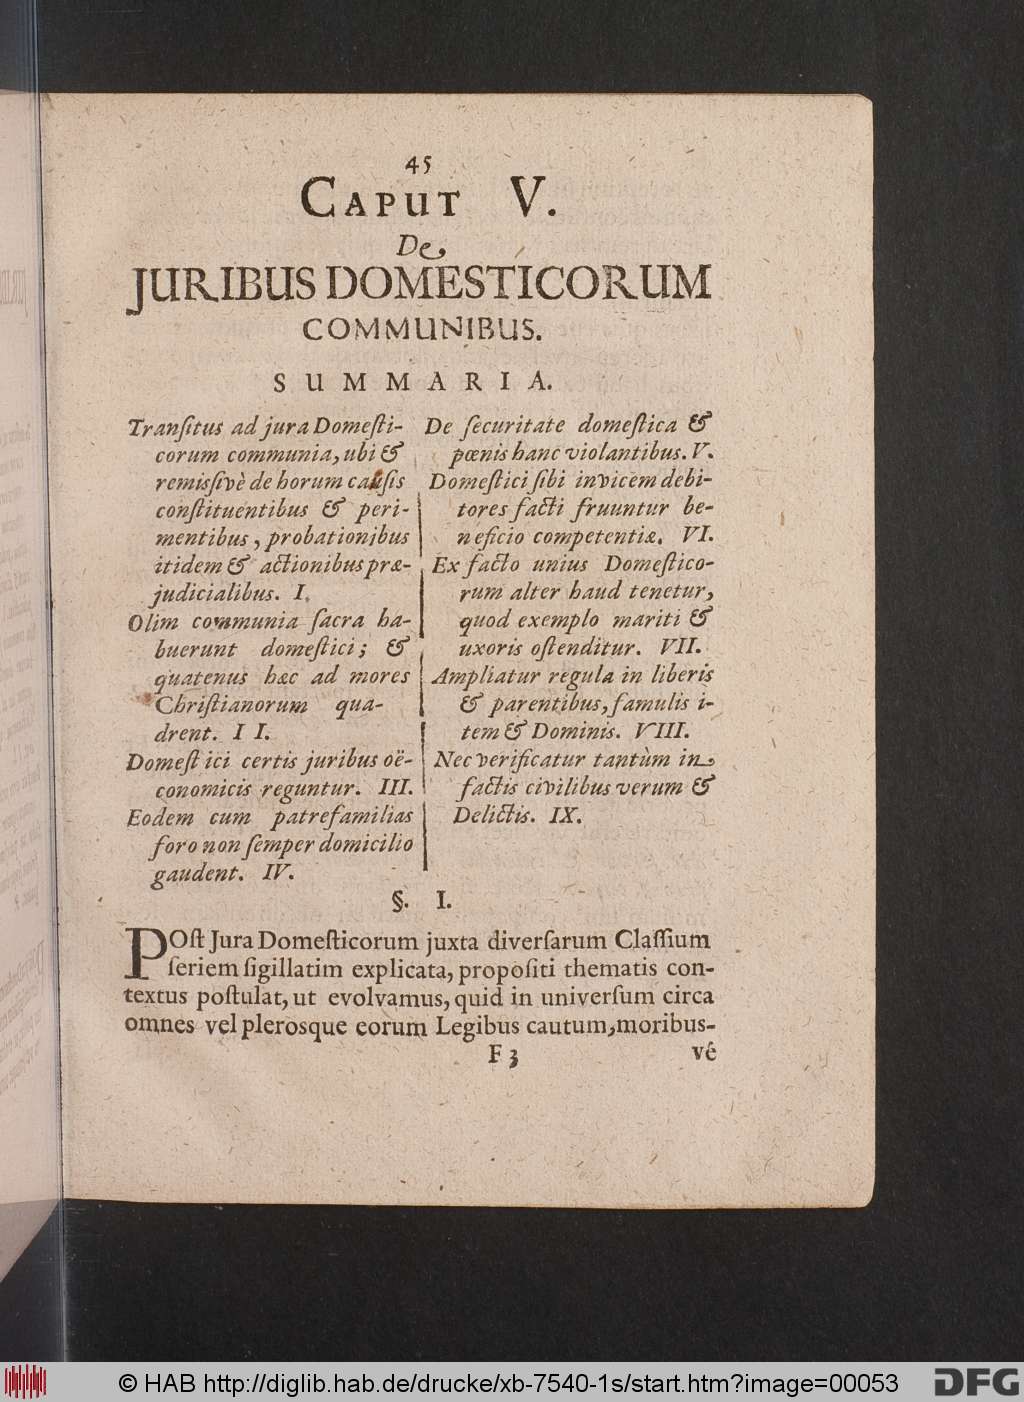 45
CAPUT V.
De
JURIBUS DOMESTICORUM
COMMUNIBUS.
SUMMARIA.
Tranſitus ad jura Domeſti-
corum communia, ubi &
remiſſivè de horum cauſis
conſtituentibus & peri-
mentibus, probationibus
itidem & actionibus præ-
judicialibus. I.
Olim communia ſacra ha-
buerunt domeſtici; &
quatenus hæc ad mores
Chriſtianorum qua-
drent. II.
Domeſtici certis juribus oë-
conomicis reguntur. III.
Eodem cum patrefamilias
foro non ſemper domicilio
gaudent. IV.
De ſecuritate domeſtica &
pœnis hanc violantibus. V.
Domeſtici ſibi invicem debi-
tores facti fruuntur be-
neficio competentiæ. VI.
Ex facto unius Domeſtico-
rum alter haud tenetur,
quod exemplo mariti &
uxoris oſtenditur. VII.
Ampliatur regula in liberis
& parentibus, famulis i-
tem & Dominis. VIII.
Nec verificatur tantùm in
factis civilibus verum &
Delictis. IX.
§. I.
POſt Jura Domeſticorum juxta diverſarum Claſſium
ſeriem ſigillatim explicata, propoſiti thematis con-
textus poſtulat, ut evolvamus, quid in univerſum circa
omnes vel plerosque eorum Legibus cautum, moribus-
F 3 vé
© HAB http://diglib.hab.de/drucke/xb-7540-1s/start.htm?image=00053
DFG